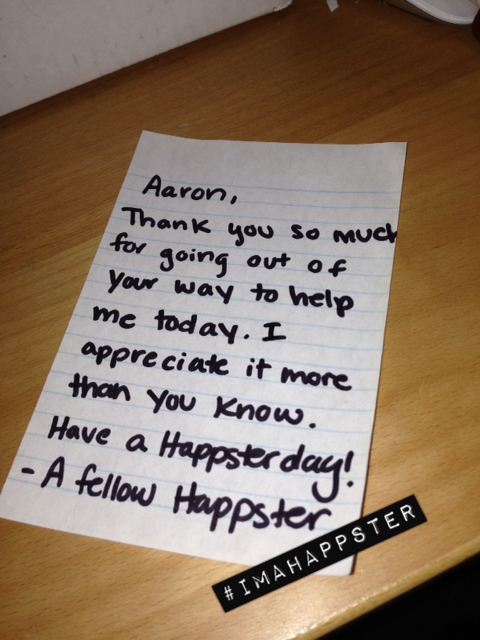 Aaron,
Thank you so much
for going out of
your way to help
me today. I
appreciate it more
than you know.
Have a Happster day!
- A fellow Happster
#IMAHAPPSTER